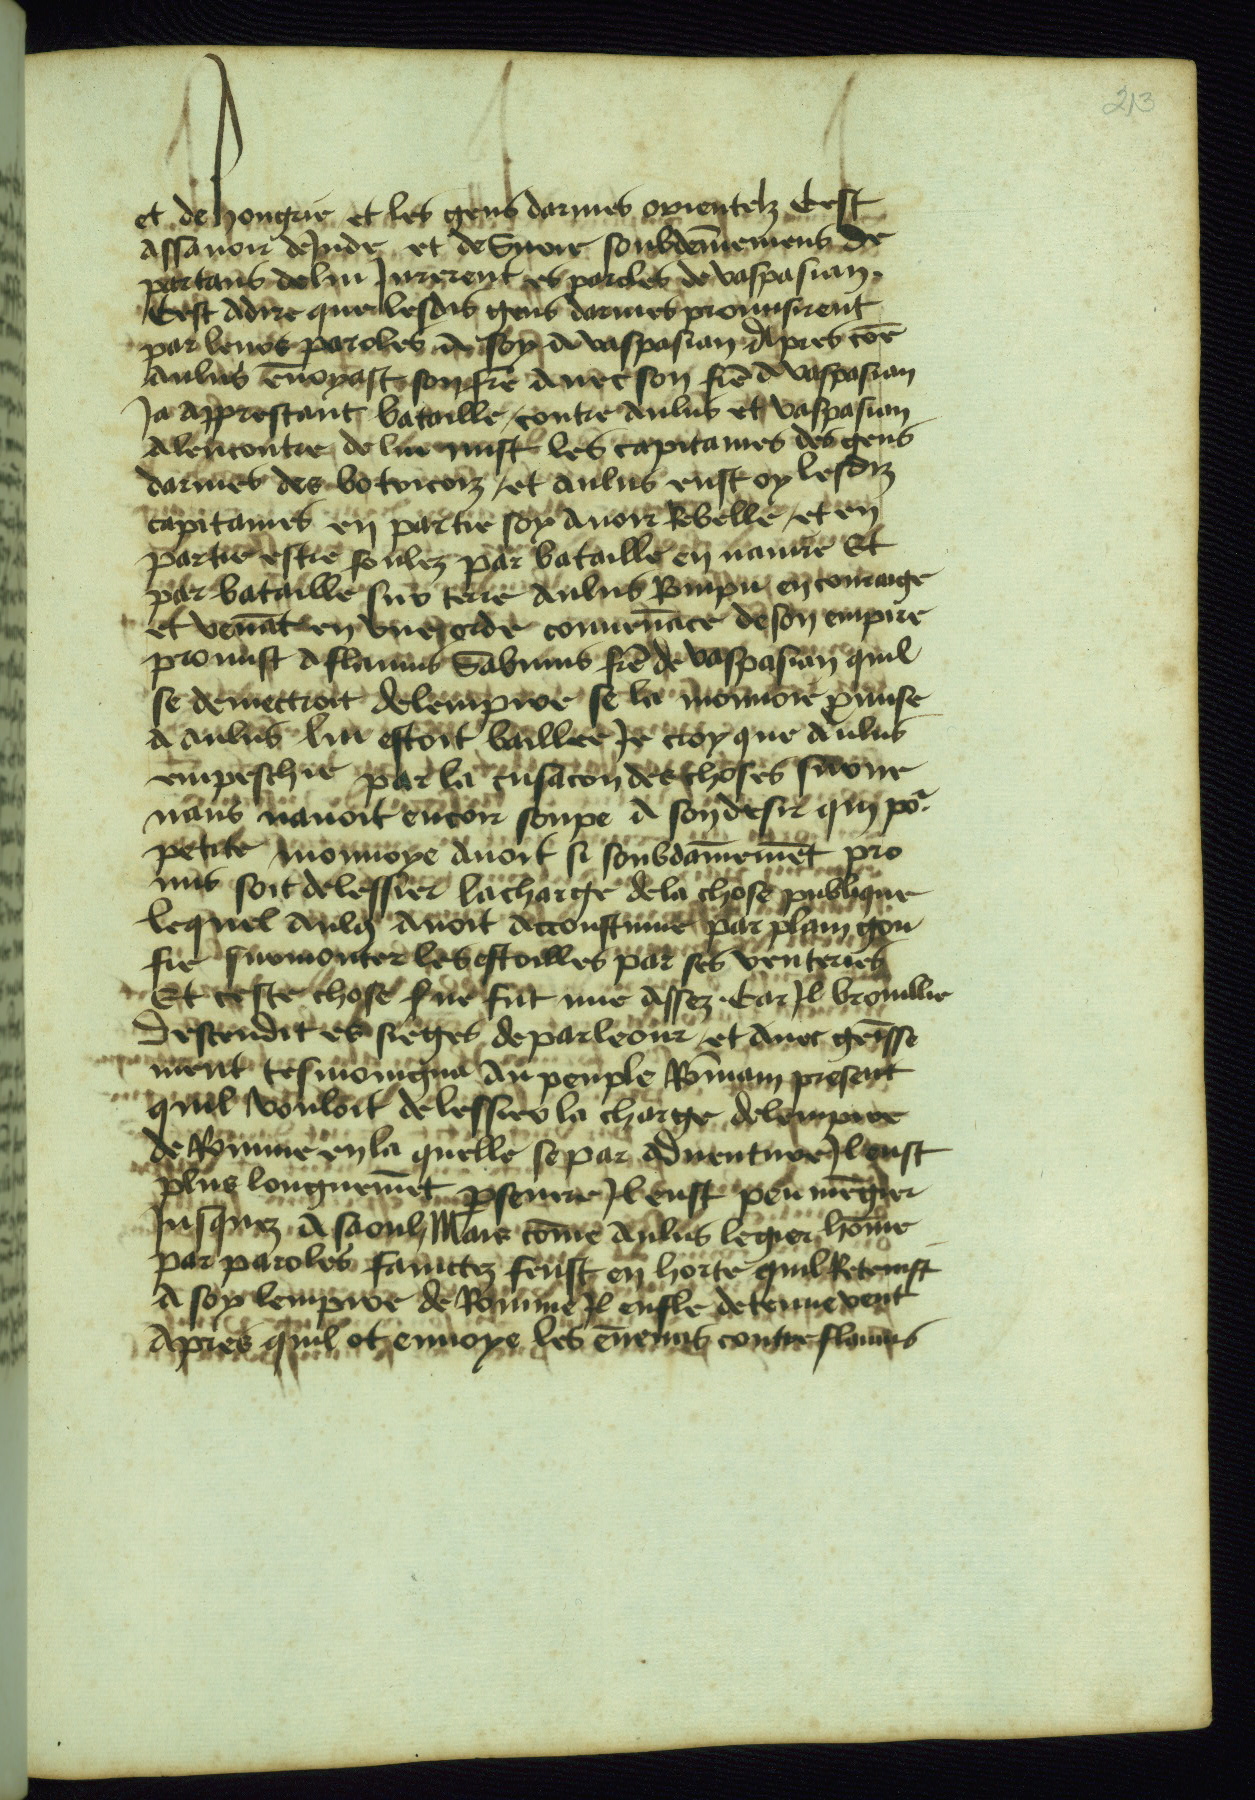 213
et de hongrie et les gens darmes orientelz Cest
assauoir de Jude et de Surie soubdem̄emens de
partans de lui Jurerent es paroles de vaspasian.
Cest adire que lesdis gens darmes promisirent
par leurs paroles de soy a vaspasian Apres cōe
aulus ēnoyast son frē auec son fiē a vaspasian
Ja apprestant bataille contre aulus et vaspasian
alencontre de lui mist les capitaines des gens
darmes des botricoiz / et aulus eust oy lesdiz
capitaines en partie soy auoir Rebelle / et en
partie estre foulez par bataille en nauire Et
par bataille sur terre aulus Rompu en couraige
et venāt en vne orde conuenāce de son empire
promist a flauius Sabinus frē de vaspasian quil
se demettroit delempire se la monnoie p̄mise
a aulus lui estoit baillee Je croy que aulus
empeschie par la cusacon des choses suruē
nans nauoit encoir soupe a son desir qui po.r
petite monnoye auoit si soubdaim̄emēt pro
mis soit delessier la charge de la chose publique
lequel aulus auoit accoustume par plain gou
fie surmonter les estoilles par ses venteries
Et ceste chose fue fut mie assez. Car Il brouillie
Descendit es sieges de parleour / et auec gēisse
ment tesmoingna au peuple Rōmain present
quil vouloit delessier la charge delempire
de Romme en la quelle se par aduenture Il eust
plus longuemēt p̄seuere Il eust peu mēgier
Jusquez a saoul Mais cōme aulus legier hōme
par paroles faincttez feust en horte quil Retenist
a soy lempire de Romme Il enfle de tenue vent
Apres quil ot enuoye les ēnemis contre flauius